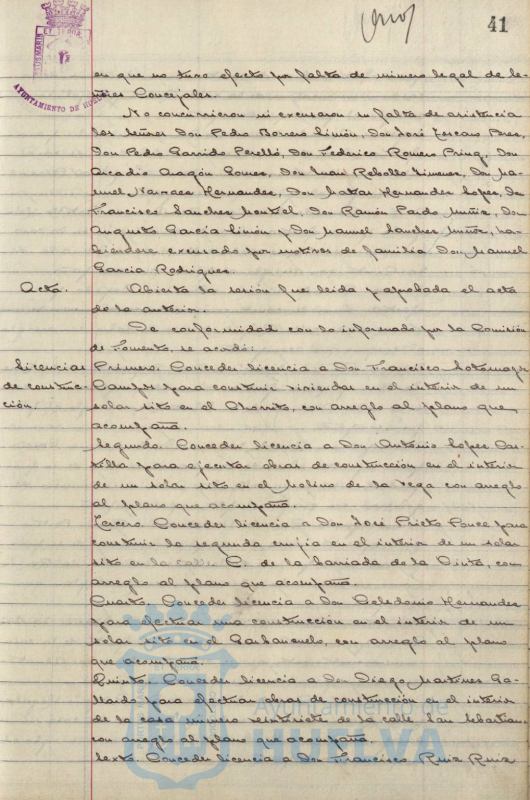 41
AYUNTAMIENTO DE HUELVA
en que no tuvo efecto por falta de número legal de Se-
ñores Concejales.
No concurrieron ni excusaron su falta de asistencia
los señores Don Pedro Borrero Limón, Don José Toscano Pérez,
Don Pedro Garrido Perelló, Don Federico Romero Don
Arcadio Aragón Gómez, Don Juan Rebollo Jimenez, Don Ma-
nuel Narvaez Hernandez, Don Matias Hernandez Lopez, Don
Francisco Sanchez Don Ramón Pardo Muñiz, Don
Augusto García Limón y Don Manuel Sanchez Muñoz, ha-
biéndose excusado por motivos de familia Don Manuel
Garcia Rodriguez.
Acta. Abierta la sesión fue leida y aprobada el acta
de la anterior.
De conformidad con lo informado por la Comisión
de Fomento, se acordó:
Licencias Primero. Conceder licencia a Don Francisco Sotomayor
de construc- Campos para construir viviendas en el interior de un
ción. solar sito en el Chorrito, con arreglo al plano que
acompaña.
Segundo. Conceder licencia a Don Antonio Lopez Cas-
tilla para ejecutar obras de construcción en el interior
de un solar sito en el Molino de la Vega con arreglo
al plano que acompaña.
Tercero. Conceder licencia a Don José Prieto Ponce para
construir la segunda crujia en el interior de un solar
sito en la calle C. de la barriada de la Cinta, con
arreglo al plano que acompaña.
Cuarto. Conceder licencia a Don Celedonio Hernandez
para efectuar una construcción en el interior de un
solar sito en el Garbanzuelo, con arreglo al plano
que acompaña.
Quinto. Conceder licencia a Don Diego Martinez Ga-
llardo para efectuar obras de construcción en el interior
de la casa número veintisiete de la calle San Sebastian
con arreglo al plano que acompaña.
Sexto. Conceder licencia a Don Francisco Ruiz Ruiz
Ayuntamiento de
HUELVA